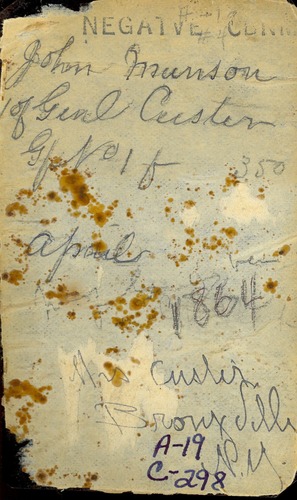 NEGATVE
John Munson
of Genl Custer
No 1
350
April
1864
Mrs Custer
Bronxville
N.Y.
A-19
C-298